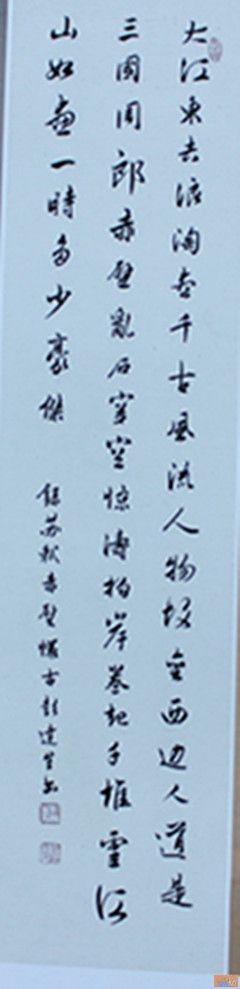 大江東去浪淘盡千古風流人物故壘西边人道是
三國周郎赤壁亂石穿空惊涛拍岸卷起千堆雪江
山如畫一時多少豪傑
録苏軾赤壁懷古